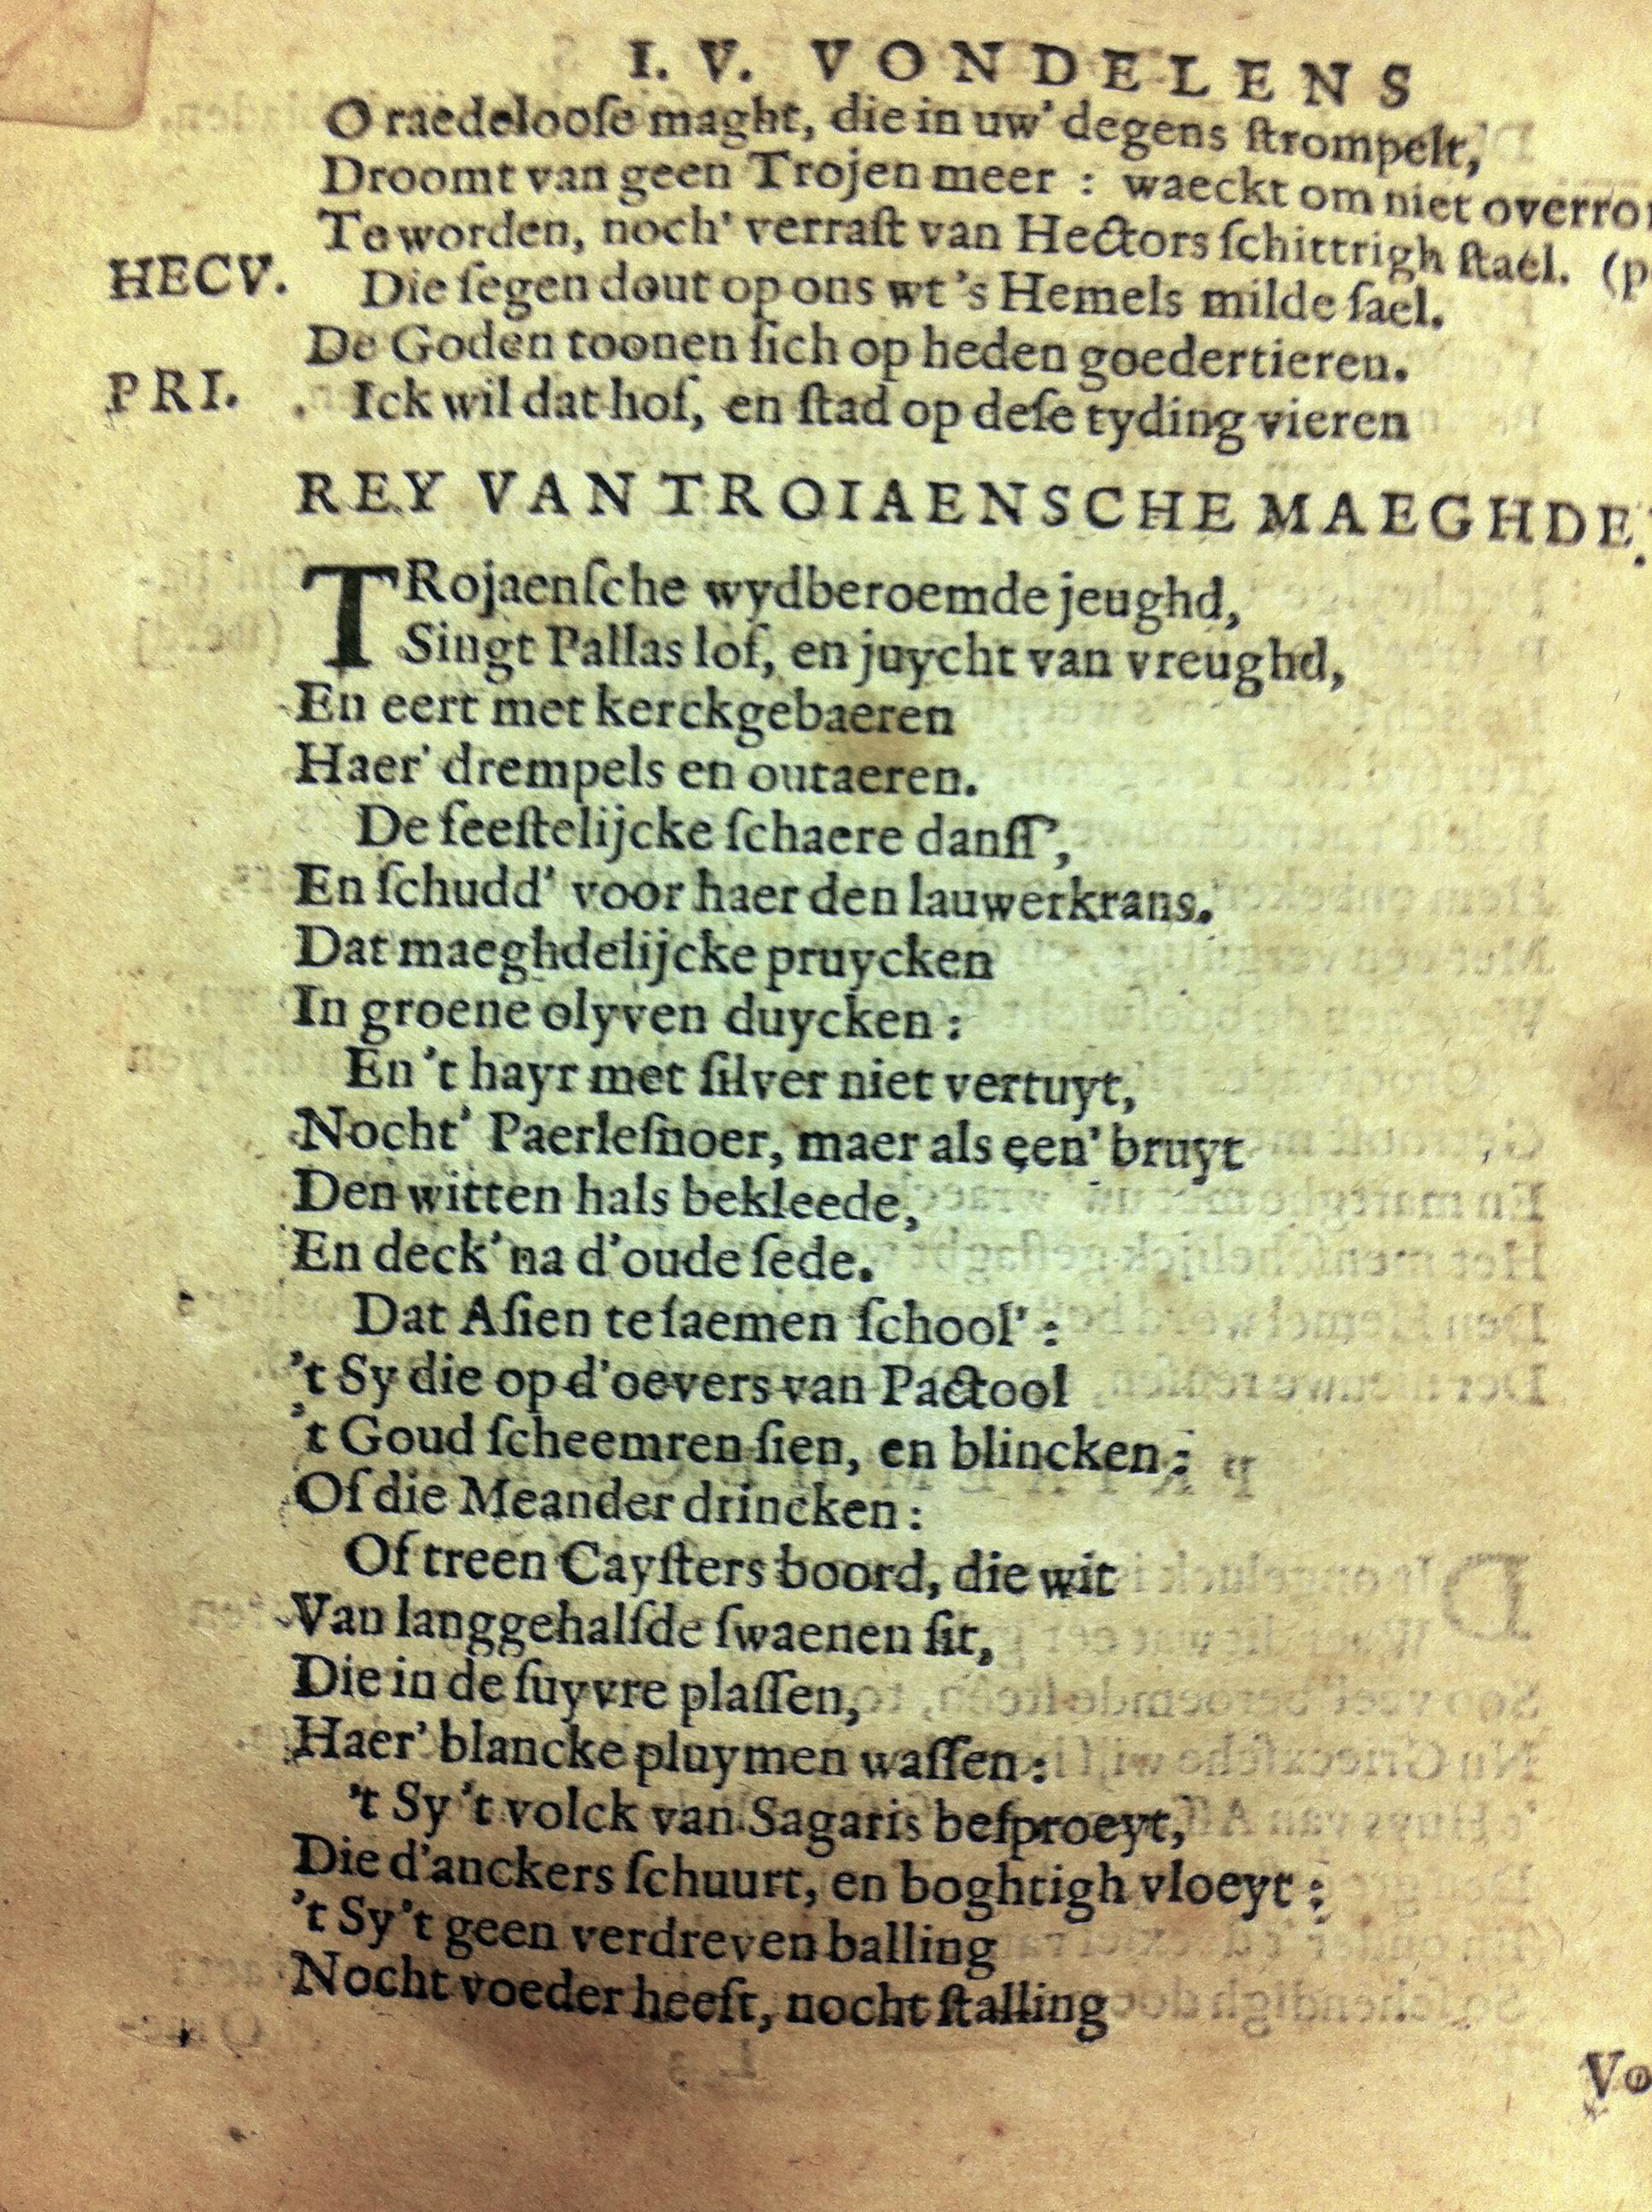 I. V. VONDELENS
O raedelooſe maght, die in uw' degens ſtrompelt,
Droomt van geen Trojen meer : waeckt om niet
Te worden, noch' verraſt van Hectors ſchittrigh ſtael. (p
HECV. Die ſegen dout op ons wt 's Hemels milde ſael.
De Goden toonen ſich op heden goedertieren.
PRI. Ick wil dat hof, en ſtad op deſe tyding vieren
REY VAN TROIAENSCHE MAEGHDE
TRojaenſche wydberoemde jeughd,
Singt Pallas lof, en juycht van vreughd,
En eert met kerckgebaeren
Haer' drempels en outaeren.
De feeſtelijcke ſchaere danſſ',
En ſchudd' voor haer den lauwerkrans.
Dat maeghdelijcke pruycken
In groene olyven duycken :
En 't hayr met ſilver niet vertuyt,
Nocht' Paerleſnoer, maer als een' bruyt
Den witten hals bekleede,
En deck' na d'oude ſede.
Dat Aſien te ſaemen ſchool' :
't Sy die op d'oevers van Pactool
't Goud ſcheemren ſien, en blincken :
Of die Meander drincken :
Of treen Cayſters boord, die wit
Van langgehalſde ſwaenen ſit,
Die in de ſuyvre plaſſen,
Haer' blancke pluymen waſſen :
't Sy 't volck van Sagaris beſproeyt,
Die d'anckers ſchuurt, en boghtigh vloeyt :
't Sy 't geen verdreven balling
Nocht voeder heeft, nocht ſtalling